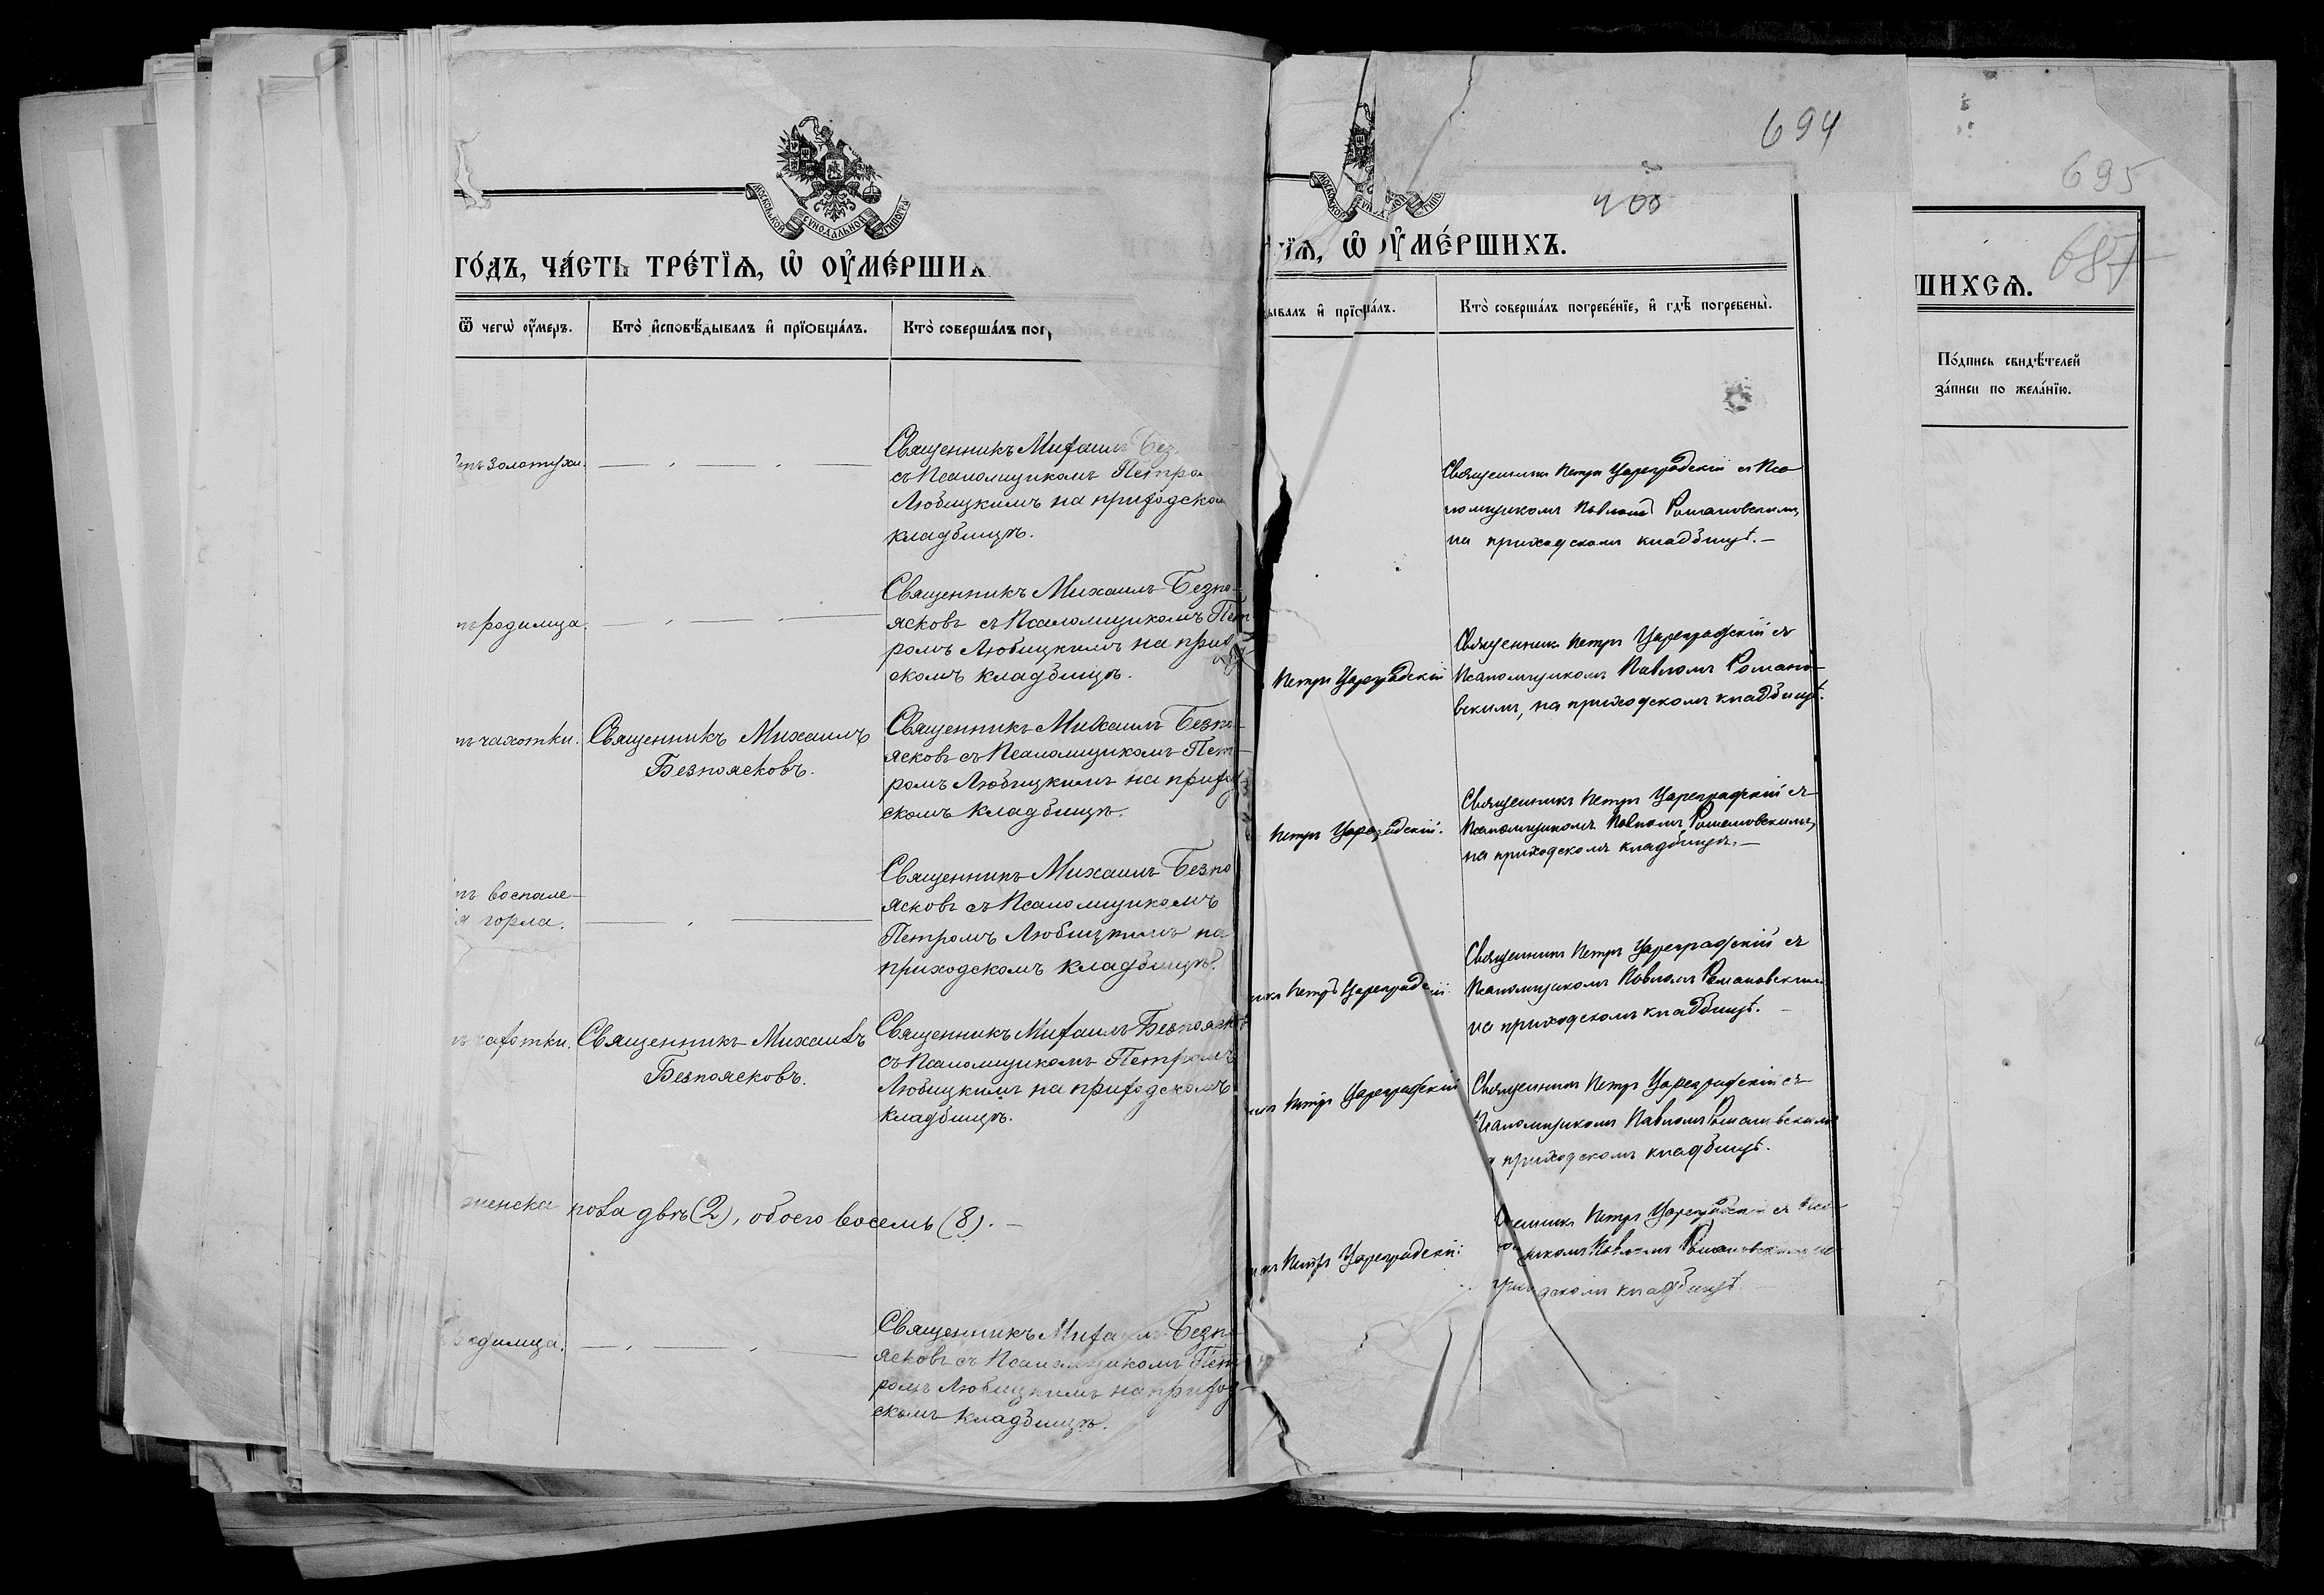 МОСКОВСКОЙ СѴНОДАЛЬНОЙ ТИПОГРА
ГО́ДЪ, ЧА́СТЬ ТРЕ́ТЇѦ, Ѽ ОУ҆МЕ́РШИХ
Ѿ чегѡ̀ оу҆́меръ.
Кто̀ и҆сповѣ́дывалъ и҆ прїѡбща́лъ.
Кто̀ соверша́лъ пог
золотухи.
Священникъ Михаилъ Без
съ Псаломщикомъ Петро
Любицкимъ на приходском
кладбищѣ.
родимца.
Священникъ Михаилъ Безпо-
ясковъ съ Псаломщикомъ Пет
ромъ Любицкимъ на приход
скомъ кладбищѣ.
чахотки.
Священникъ Михаилъ
Безпоясковъ.
Священникъ Михаилъ Безпо-
ясковъ съ Псаломщикомъ Пет-
ромъ Любицкимъ на приход
скомъ кладбищѣ.
воспале-
я горла.
Священникъ Михаилъ Безпо
ясковъ съ Псаломщикомъ
Петромъ Любицкимъ на
приходскомъ кладбищѣ.
чахотки.
Священникъ Михаилъ
Безпоясковъ.
Священникъ Михаилъ Безпоясковъ
съ Псаломщикомъ Петромъ
Любицкимъ на приходскомъ
кладбищѣ.
женска пола двѣ (2), обоего восемь (8). —
родимца.
Священникъ Михаилъ Безпо
ясковъ съ Псаломщикомъ Пет
ромъ Любицкимъ на приход-
скомъ кладбищѣ.
694
400
ЇѦ, Ѽ ОУ҆МЕ́РШИХЪ.
ывалъ и҆ прїѡбща́лъ.
Кто̀ соверша́лъ погребе́нїе, и҆ гдѣ̀ погребены̀.
Священникъ Петръ Цареградскій съ Пса
ломщикомъ Павломъ Романовскимъ,
на приходскомъ кладбищѣ. —
Петръ Цареградскій
Священникъ Петръ Цареградскій съ
Псаломщикомъ Павломъ Романо-
вскимъ, на приходскомъ кладбищѣ.
Петръ Цареградскій.
Священникъ Петръ Цареградскій съ
Псаломщикомъ Павломъ Романовскимъ,
на приходскомъ кладбищѣ. —
Петръ Цареградскій
Священникъ Петръ Цареградскій съ
Псаломщикомъ Павломъ Романовским
на приходскомъ кладбищѣ. —
Петръ Цареградскій
Священникъ Петръ Цареградскій съ
Псаломщикомъ Павломъ Романовскимъ
приходскомъ кладбищѣ.
Петръ Цареградскій
Петръ Цареградскій съ Пса
Павломъ Романовскимъ на
приходскомъ кладбищѣ. —
695
687
ШИХСѦ.
По́дпись свидѣ́телей
за́писи по жела́нїю.